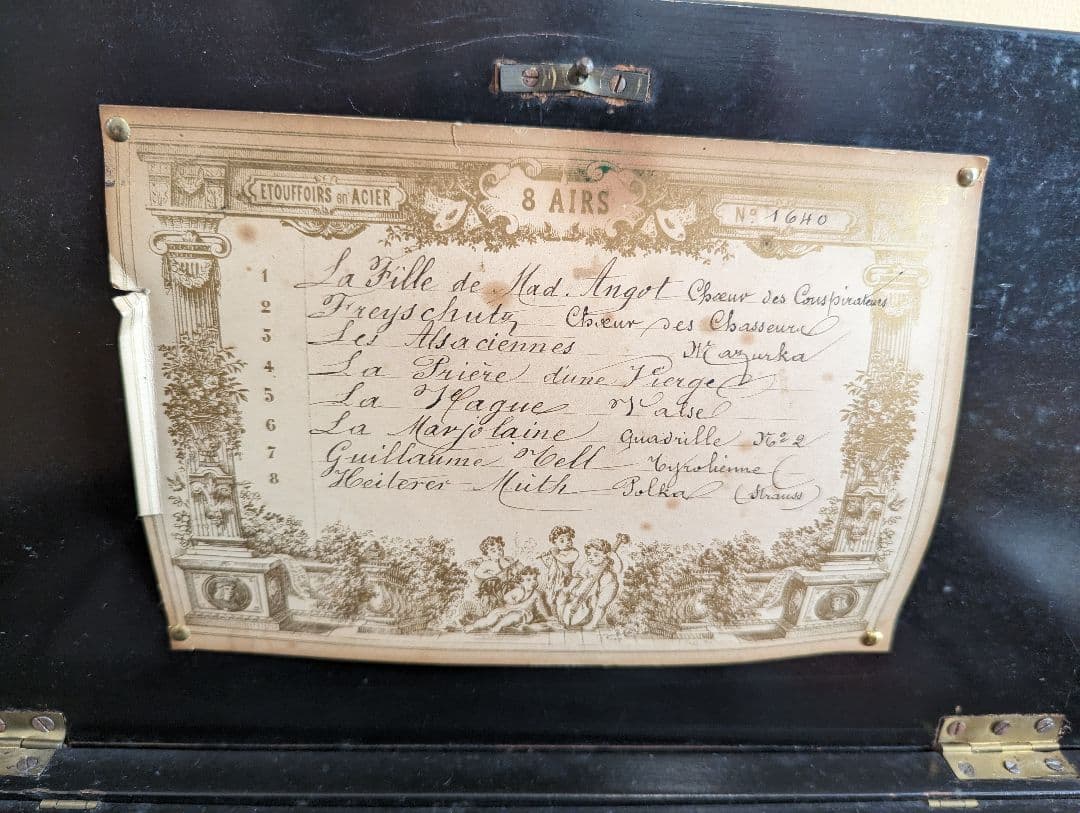 ETOUFFOIRS en ACIER
8 AIRS
Nº 1640
1 La Fille de Mad. Angot Chœur des Conspirateurs
2 Freyschutz Chœur des Chasseurs
3 Les Alsaciennes Mazurka
4 La Priere d'une Vierge
5 La Vague Valse
6 La Marjolaine Quadrille Nº 2
7 Guillaume Tell Tyrolienne
8 Heiterer Muth Polka (Strauss)